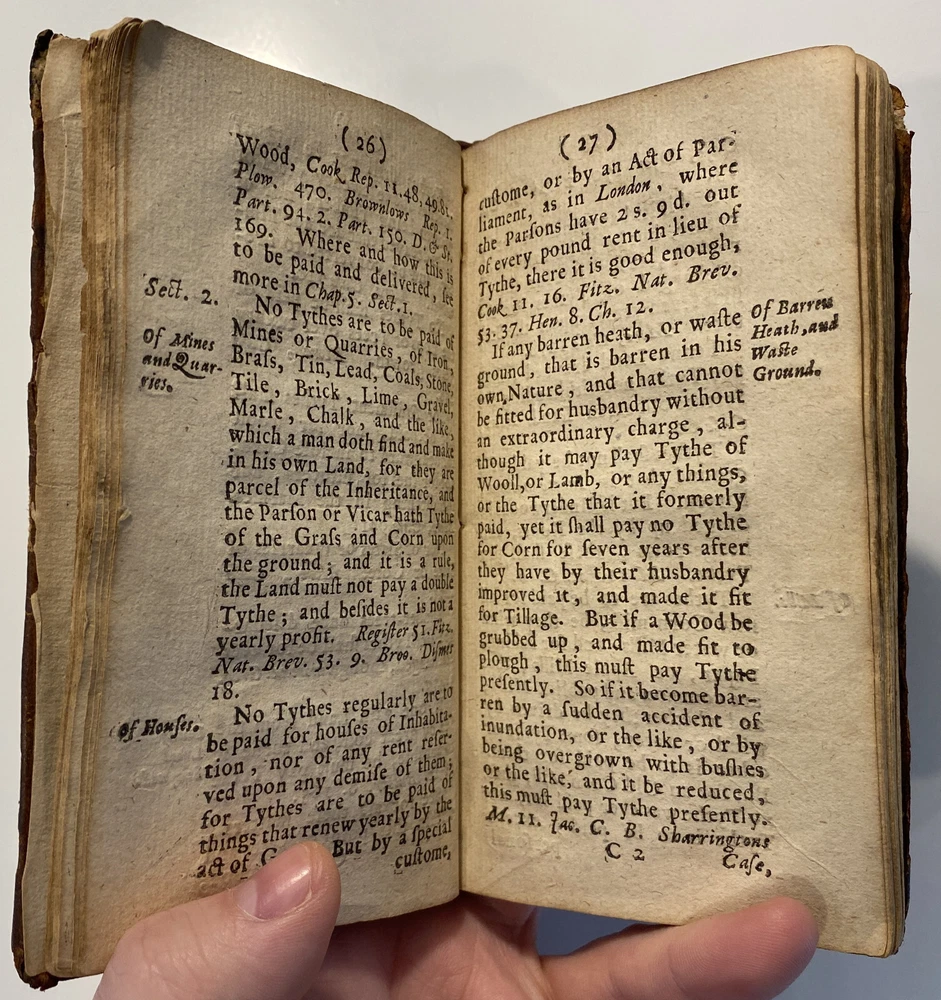 (26)
Wood, Cook Rep. 11.48,49.81.
Plow. 470. Brownlows Rep. 1.
Part. 94. 2. Part. 150. D. & St.
169. Where and how this is
to be paid and delivered, see
more in Chap. 5. Sect. 1.
Sect. 2.
No Tythes are to be paid of
Of Mines
and Quar-
ries.
Mines or Quarries, of Iron,
Braſs, Tin, Lead, Coals, Stone,
Tile, Brick, Lime, Gravel,
Marle, Chalk, and the like,
which a man doth find and make
in his own Land, for they are
parcel of the Inheritance, and
the Parſon or Vicar hath Tythe
of the Graſs and Corn upon
the ground; and it is a rule,
the Land muſt not pay a double
Tythe; and beſides it is not a
yearly profit. Regiſter 51. Fitz.
Nat. Brev. 53. 9. Broo. Diſmes
18.
Of Houſes.
No Tythes regularly are to
be paid for houſes of Inhabita-
tion, nor of any rent reſer-
ved upon any demiſe of them;
for Tythes are to be paid of
things that renew yearly by the
act of But by a ſpecial
cuſtome,
(27)
cuſtome, or by an Act of Par-
liament, as in London, where
the Parſons have 2 s. 9 d. out
of every pound rent in lieu of
Tythe, there it is good enough,
Cook 11. 16. Fitz. Nat. Brev.
53. 37. Hen. 8. Ch. 12.
Of Barren
Heath, and
Waſte
Ground.
If any barren heath, or waſte
ground, that is barren in his
own Nature, and that cannot
be fitted for husbandry without
an extraordinary charge, al-
though it may pay Tythe of
Wooll, or Lamb, or any things,
or the Tythe that it formerly
paid, yet it ſhall pay no Tythe
for Corn for ſeven years after
they have by their husbandry
improved it, and made it fit
for Tillage. But if a Wood be
grubbed up, and made fit to
plough, this muſt pay Tythe
preſently. So if it become bar-
ren by a ſudden accident of
inundation, or the like, or by
being overgrown with buſhes
or the like, and it be reduced,
this muſt pay Tythe preſently.
M. 11. Jac. C. B. Sharringtons
C 2 Caſe,